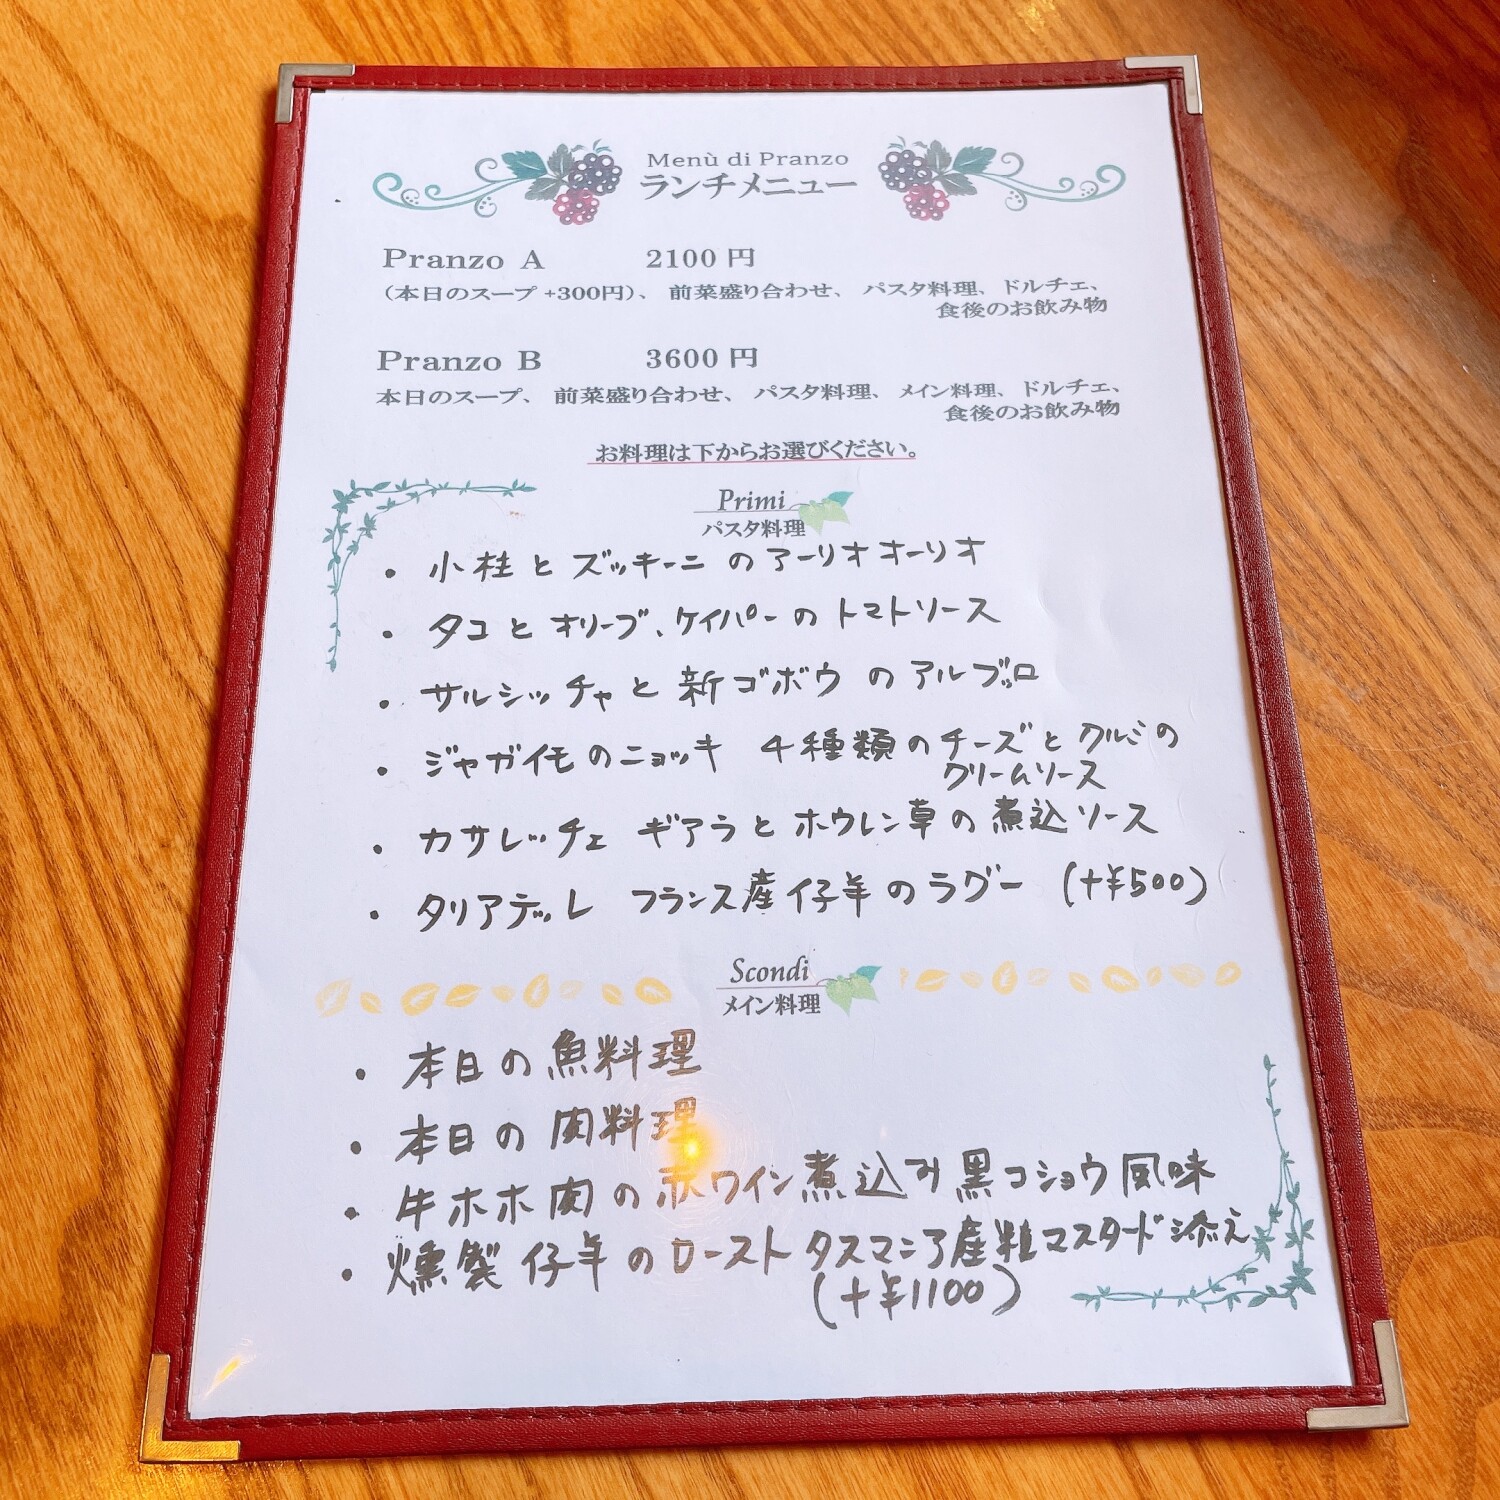 Menù di Pranzo
ランチメニュー
Pranzo A 2100 円
(本日のスープ +300円)、前菜盛り合わせ、パスタ料理、ドルチェ、
食後のお飲み物
Pranzo B 3600 円
本日のスープ、前菜盛り合わせ、パスタ料理、メイン料理、ドルチェ、
食後のお飲み物
お料理は下からお選びください。
Primi
パスタ料理
・小柱とズッキーニのアーリオオーリオ
・タコとオリーブ、ケイパーのトマトソース
・サルシッチャと新ゴボウのアルブッロ
・ジャガイモのニョッキ 4種類のチーズとクルミの
クリームソース
・カサレッチェ ギアラとホウレン草の煮込ソース
・タリアテッレ フランス産仔羊のラグー (+¥500)
Scondi
メイン料理
・本日の魚料理
・本日の肉料理
・牛ホホ肉の赤ワイン煮込み黒コショウ風味
・燻製仔羊のロースト タスマニア産粒マスタード添え
(+¥1100)